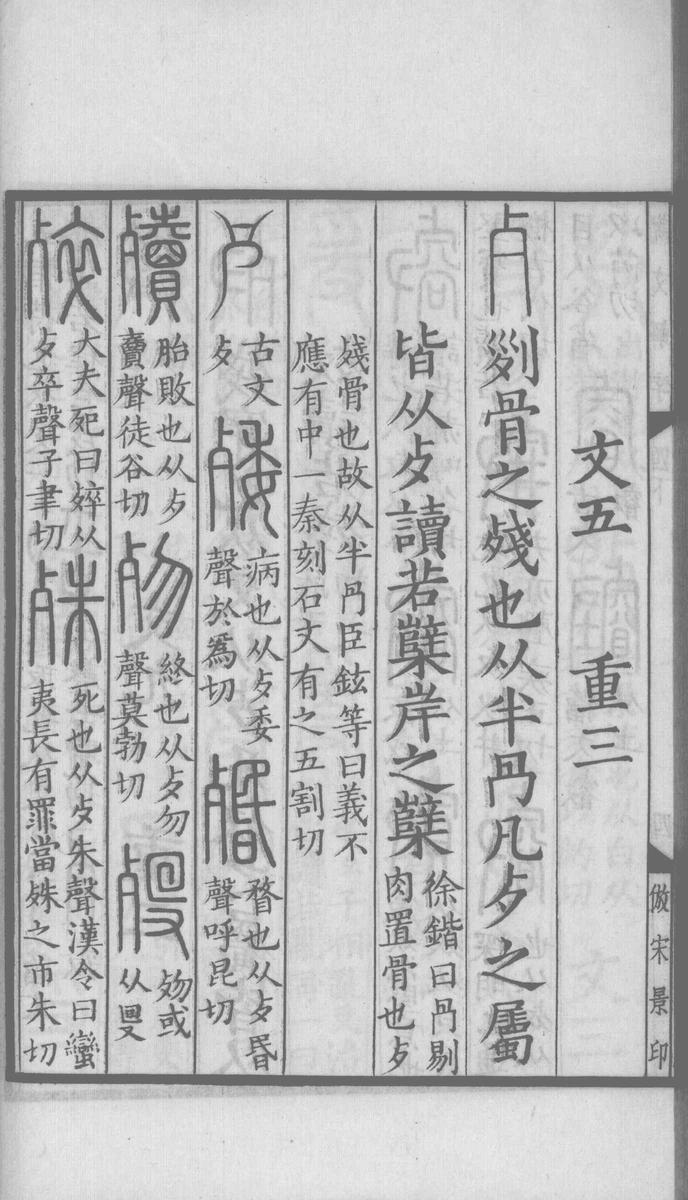 文五　重三
歺　𠛱骨之殘也从半冎凡歺之屬
皆从歺讀若櫱岸之櫱　徐鍇曰冎剔
肉置骨也歺
殘骨也故从半冎臣鉉等曰義不
應有中一秦刻石文有之五割切
𣦵　古文
歺　殘　病也从歺委
聲於爲切　殙　瞀也从歺昬
聲呼昆切
殰　胎敗也从歺
𧶠聲徒谷切　歾　終也从歺勿
聲莫勃切　歿　歾或
从𠬸
殚　大夫死曰殚从
歺卒聲子聿切　殊　死也从歺朱聲漢令曰蠻
夷長有罪當殊之市朱切
倣宋景印